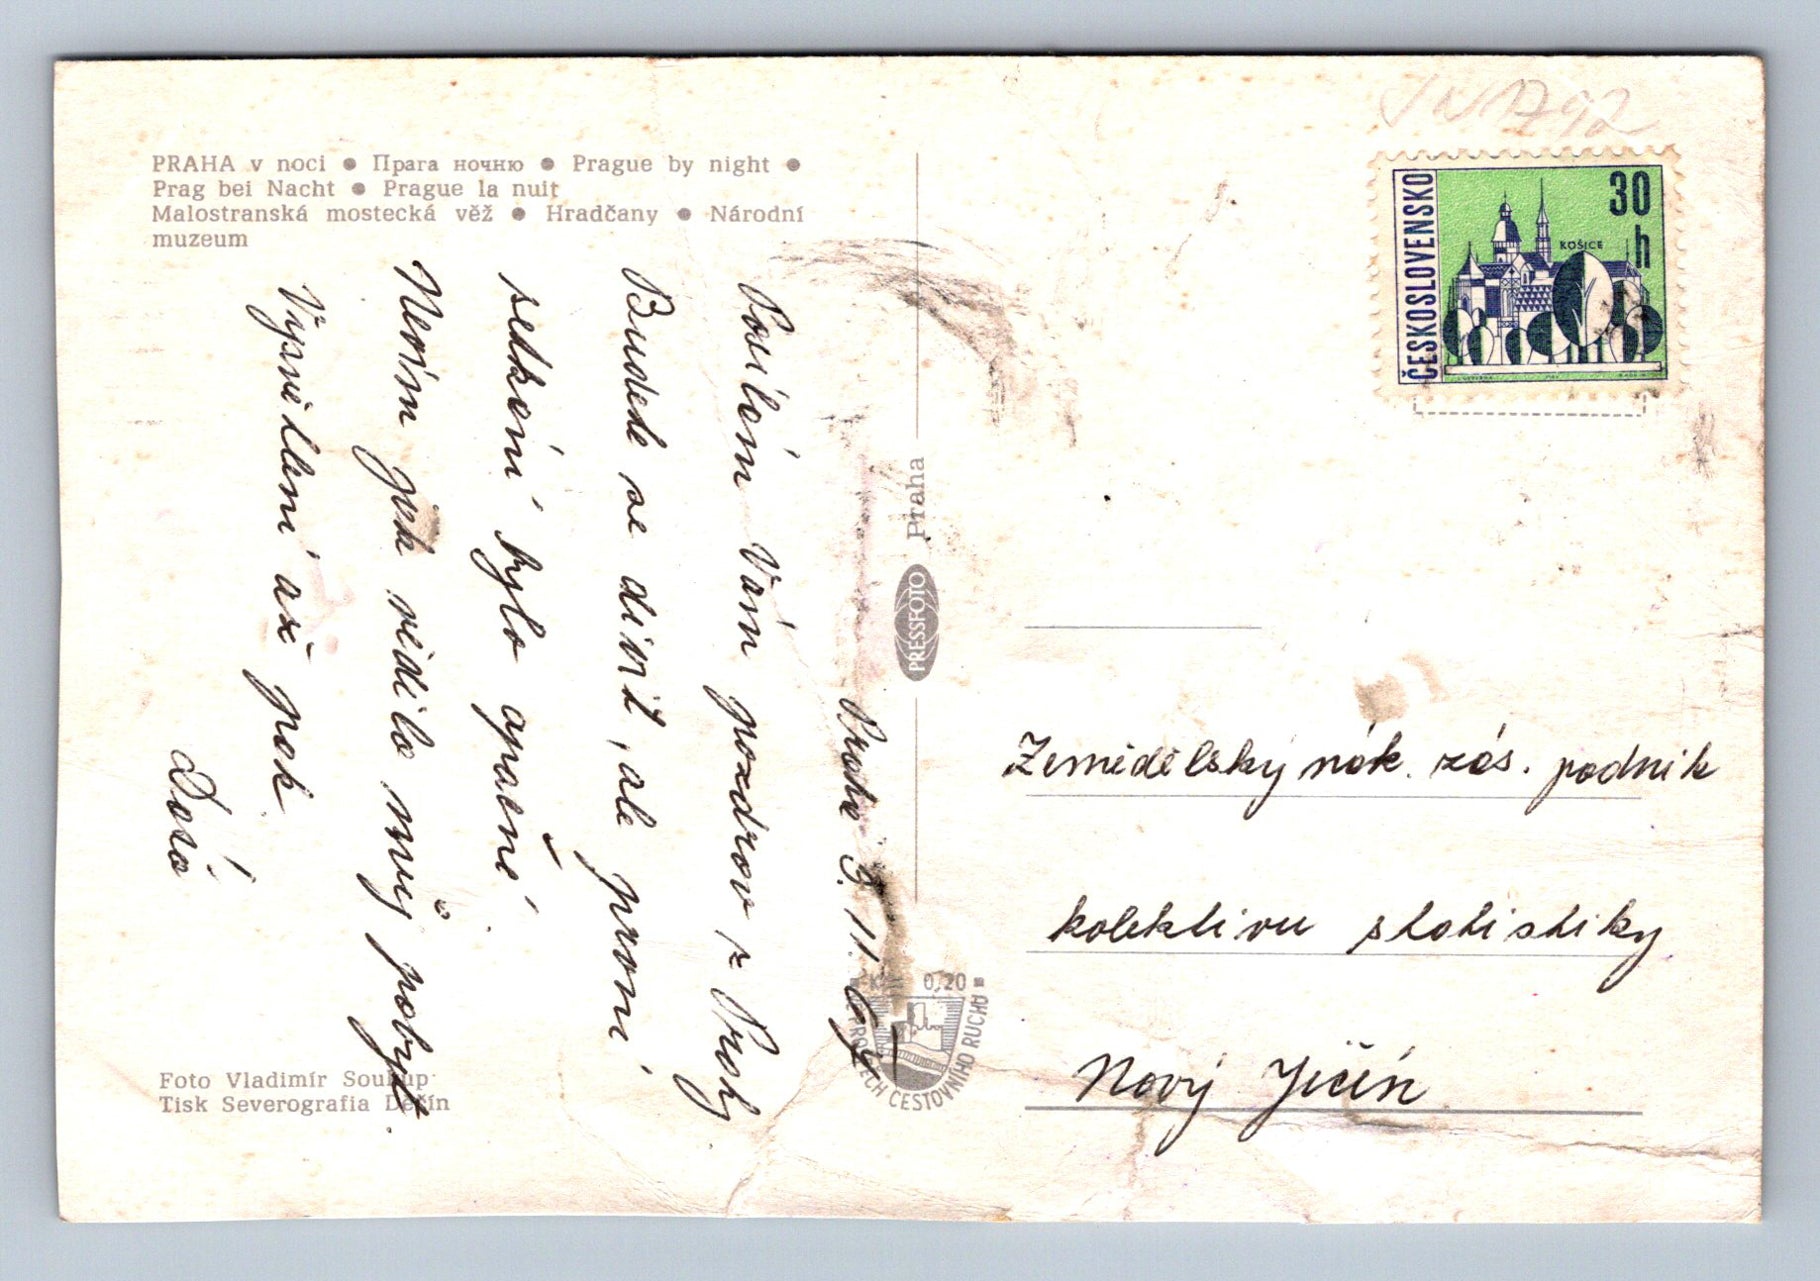 PRAHA v noci ● Прага ночню ● Prague by night ●
Prag bei Nacht ● Prague la nuit
Malostranská mostecká věž ● Hradčany ● Národní
muzeum
Praha 9. 11.
Posílám Vám pozdrav z Prahy
Budete se divit, ale první
setkání bylo opačné
Nevím jak vidilo můj pobyt.
Vysvětlení až pak
Foto Vladimír Soukup
Tisk Severografia Děčín
PRESSFOTO Praha
0,20
CESTOVNÍHO RUCHU
92
ČESKOSLOVENSKO
30
h
KOŠICE
Zemědělský nák. zás. podnik
kolektivu statistiky
Nový Jičín